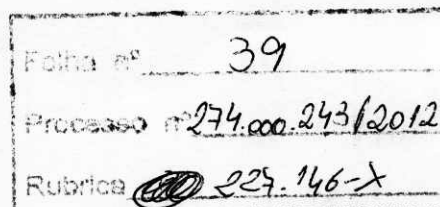 Folha nº 39
Processo nº 274.000.243/2012
Rubrica 227.146-X